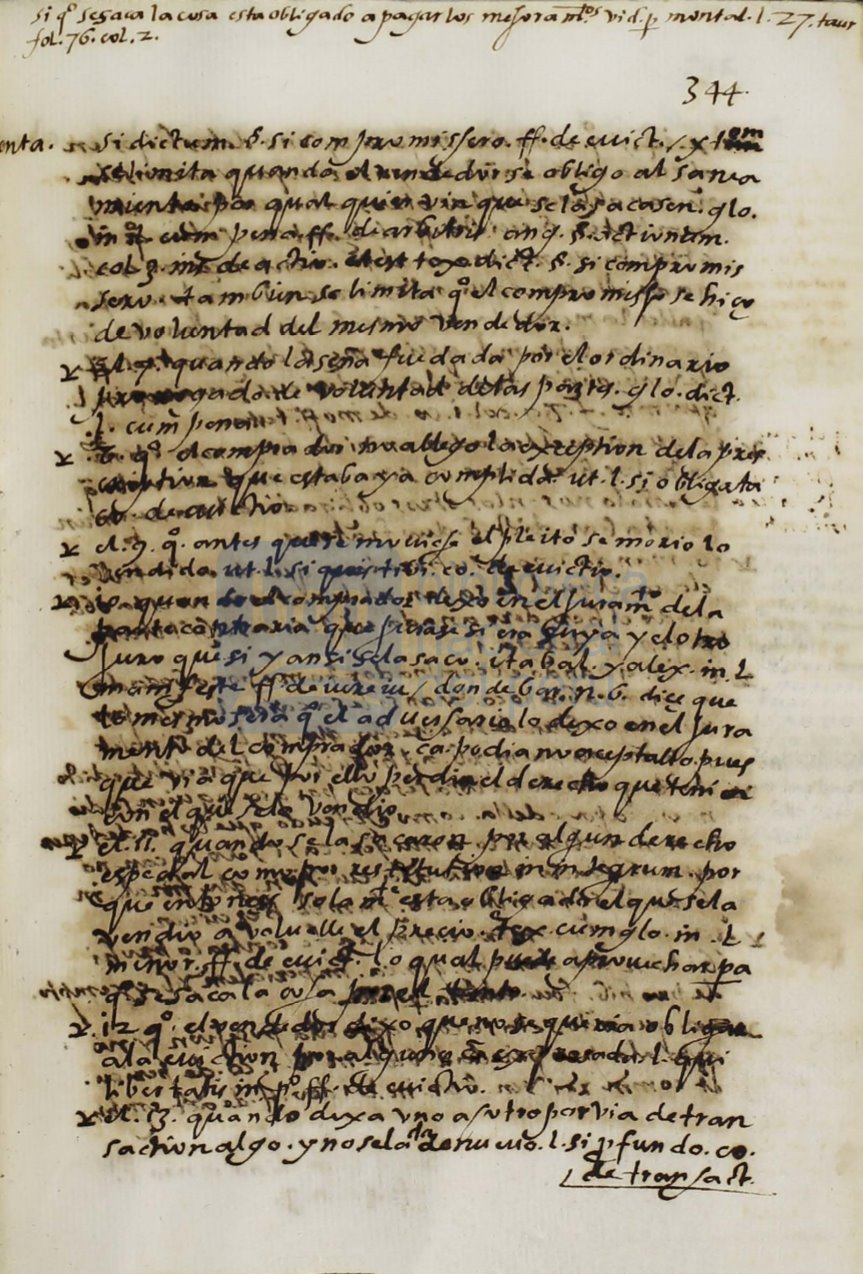 si qº se saca la cosa esta obligado a pagar los mejoramtos vid. p montal. l. 27. taur
fol. 76. col. 2.
344.
enta. si dictum. §. si compromissero. ff. de evict.
se limita quando el vendedor se obligo al sanea
miento por qual quier via que se la sacasen. glo.
in l. cum pena ff. de arbitris. ang. §. actionum.
col. 3. inst. de actio. et est tex. dict. §. si compromis
sero. tambien se limita qº el compromisso se hiço
de voluntad del mesmo vendedor.
quando la seña fue dada por el ordinario
prorogado de voluntad de las partes. glo. dict.
l. cum pena
qº el comprador no allego la exception de la pres
criptiun que estaba ya cumplida. ut. l. si obligata
eo. de evictio.
el. 9. qº. antes que se moviese el pleito se morio lo
vendido. ut l. si eo. de evictio.
10 quando el comprador dexo en el juramto de la
parte contraria que jurase si era suya y el otro
juro que si y ansi se la saco. ita bal. y alex. in. l.
manifeste ff. de iureiu/ donde bar. n. 6. diçe que
lo mesmo sera qº el adversario lo dexo en el jura
mento del comprador. ca podia no aceptallo. pues
que via que por ello perdia el derecho que tenia
con el que se lo vendio.
el. 11. quando se la sacaron por algun derecho
espeçial como por restitution in integrum. por
que entonces solamte esta obligado el que se la
vendio a volvelle el precio. tex. cum glo. in. l
minor. ff. de evict. lo qual puede aprovechar pa
qº se saca la cosa por el
12 qº. el vendedor dixo que no se queria obligar
a la eviction por alguno l. qui
libertatis in pº. ff. de evictio.
el. 13. quando dexa uno a su otro por via de tran
saction algo. y no se la da de nuevo. l. si p fundo. co.
de transact.